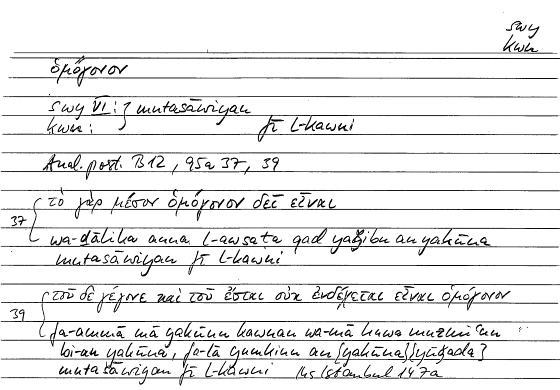 swy
kwn
ὁμόγονον
swy VI : } mutasāwiyan
kwn : fī l-kawni
Anal. post. B 12, 95a 37, 39
τὸ γὰρ μέσον ὁμόγονον δεῖ εἶναι
37
wa-ḏālika anna l-awsaṭa qad yaǧibu an yakūna
mutasāwiyan fī l-kawni
τοῦ δὲ γέγονε καὶ τοῦ ἔσται οὐκ ἐνδέχεται εἶναι ὁμόγονον
39
fa-ammā mā yakūnu kawnan wa-mā huwa muzmiʿun
bi-an yakūna, fa-lā yumkinu an {yakūna} yūǧada}
mutasāwiyan fī l-kawni Hs Istanbul 147a